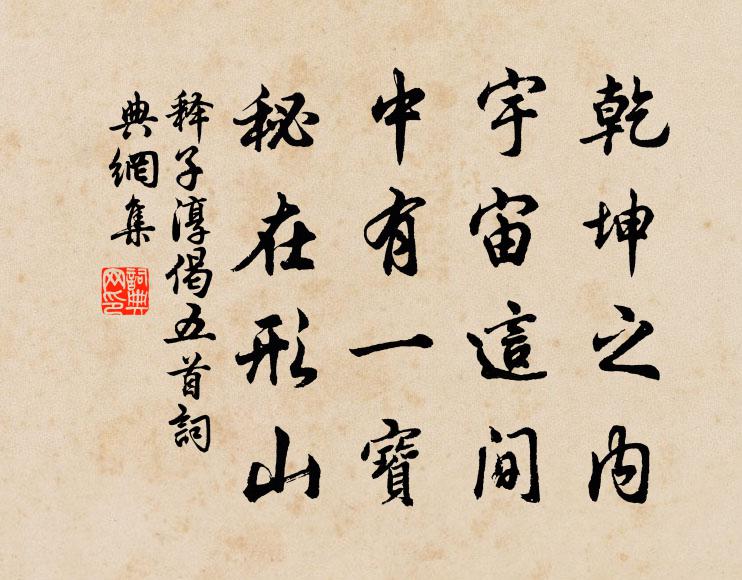 乾坤之内
宇宙這间
中有一寶
秘在形山
释子淳偈五首詞
典網集
詞典網印